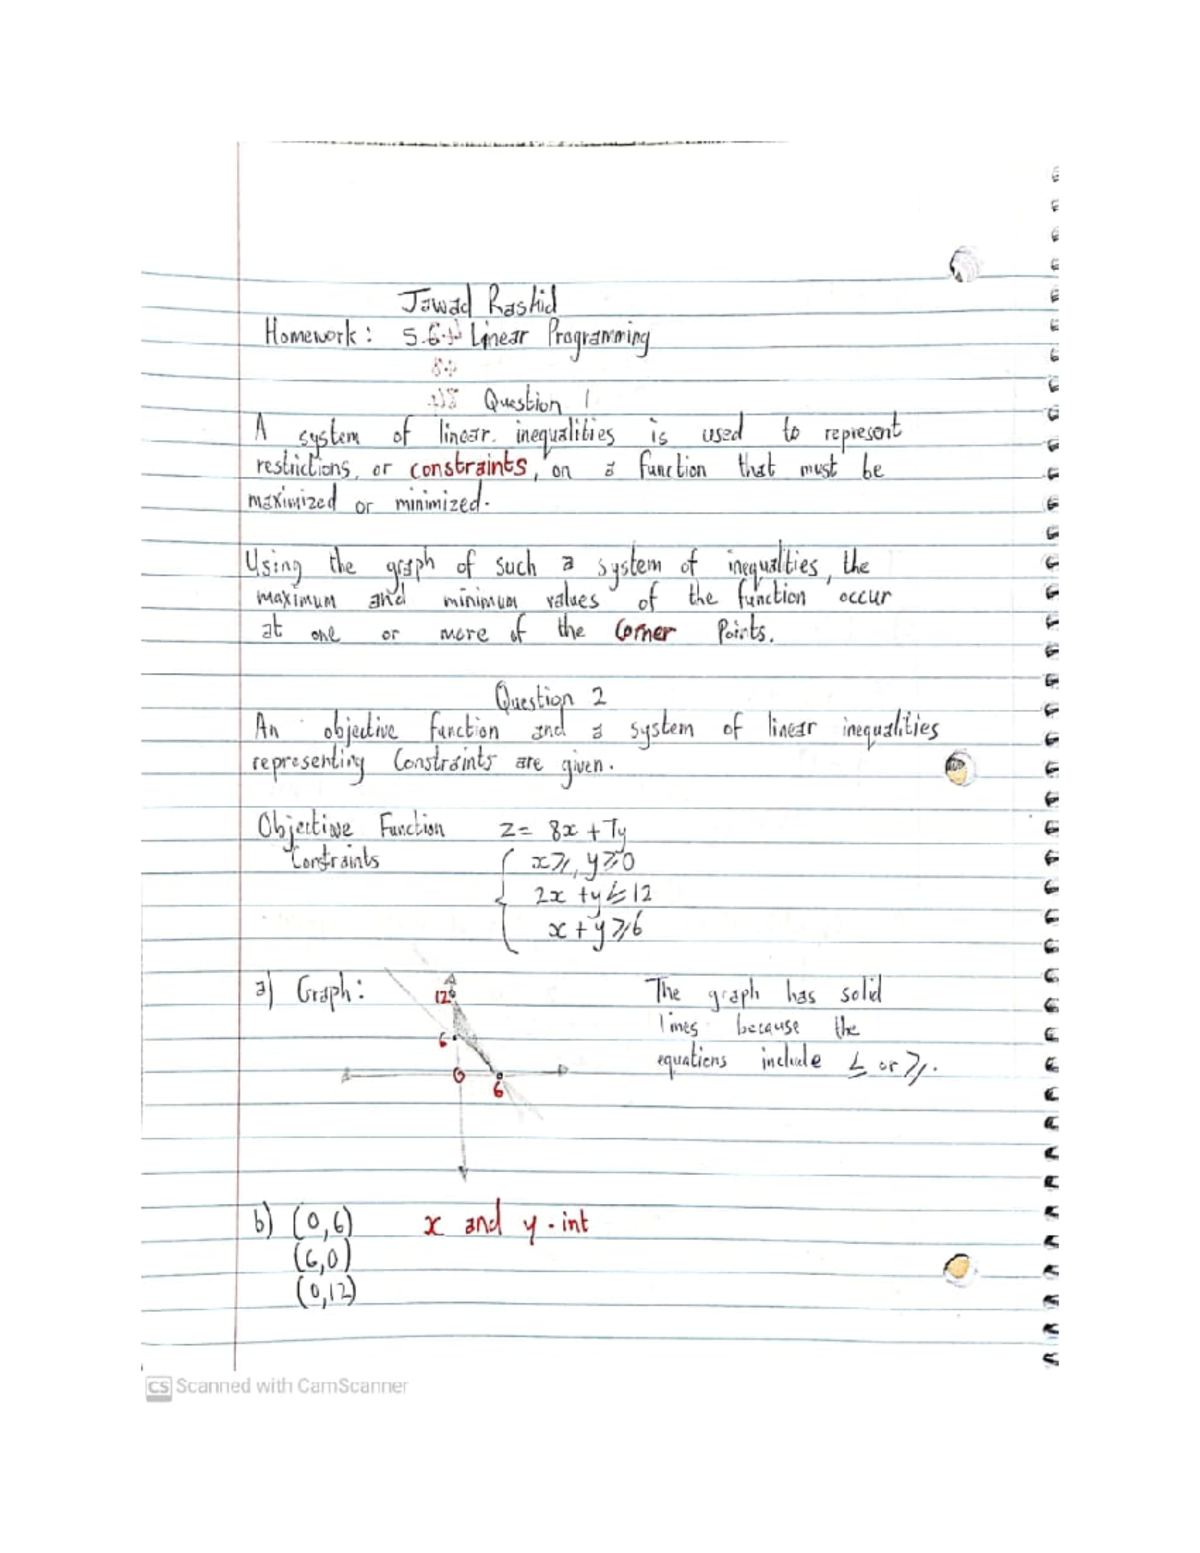 Jawad Rashid
Homework: 5.6 Linear Programming
Question 1
A system of linear inequalities is used to represent
restrictions, or constraints, on a function that must be
maximized or minimized.
Using the graph of such a system of inequalities, the
maximum and minimum values of the function occur
at one or more of the Corner Points.
Question 2
An objective function and a system of linear inequalities
representing Constraints are given.
Objective Function z = 8x + 7y
Constraints { x ≥, y ≥ 0
2x + y ≤ 12
x + y ≥ 6
a) Graph: 12 The graph has solid
6 lines because the
0 6 equations include ≤ or ≥.
b) (0,6) x and y-int
(6,0)
(0,12)
CS Scanned with CamScanner